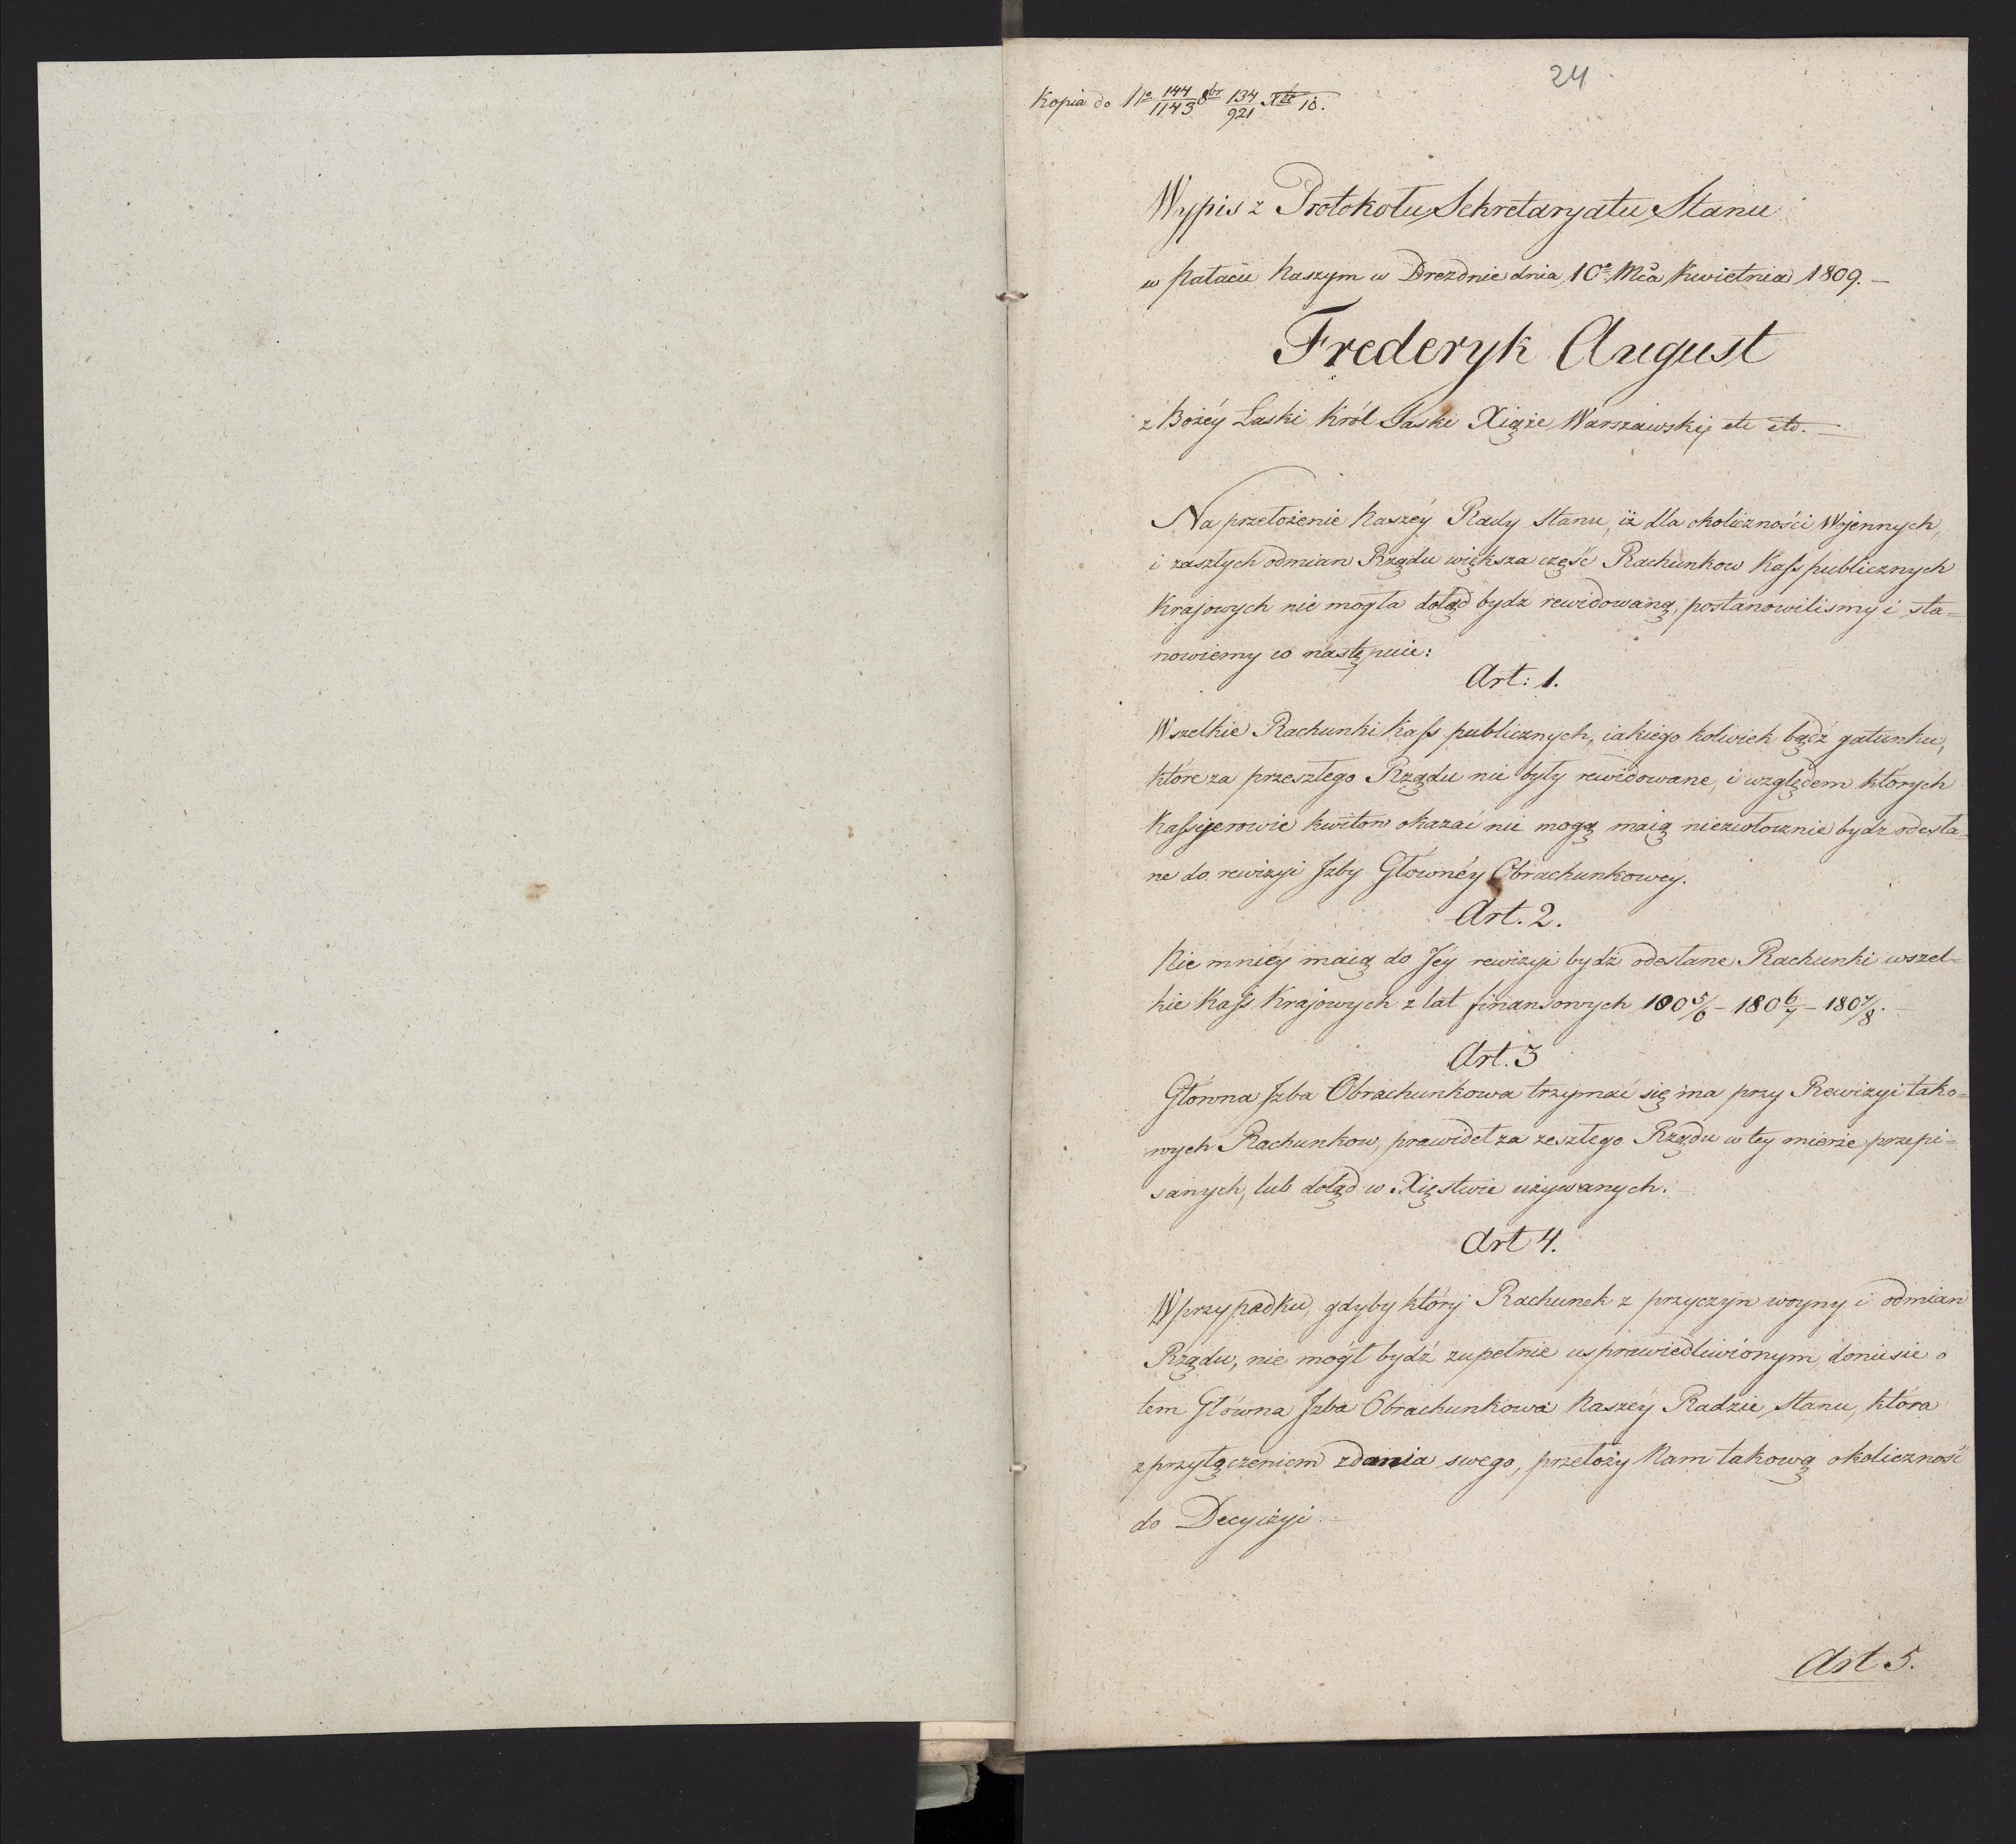 24
Kopia do No 144/1143 8br 134/921 Xbr 18.
Wypis z Protokołu Sekretaryatu Stanu
w Pałacu Naszym w Dreznie dnia 10o Mca Kwietnia 1809. —
Frederyk August
z Bożéy Łaski Król Saski Xiąże Warszawski, etc etc. —
Na przełożenie Naszéy Rady Stanu, iż dla okoliczności Wojennych,
i zaszłych odmian Rządu większa część Rachunkow Kass publicznych
Krajowych nie mogła dotąd bydź rewidowaną, postanowilismy i sta=
nowiemy co następuie:
Art: 1.
Wszelkie Rachunki Kass publicznych, iakiego kolwiek bądź gatunku,
które za przeszłego Rządu nie były rewidowane, i względem których
Kassyerowie kwitow okazać nie mogą maią niezwłocznie bydz odesła=
ne do rewizyi Izby Głównéy Obrachunkowéy.
Art. 2.
Nie mniéy maią do Jéy rewizyi bydź odesłane Rachunki wszel=
kie Kass Krajowych z lat finansowych 180 5/6 – 180 6/7 – 180 7/8. —
Art. 3
Główna Izba Obrachunkowa trzymać się ma przy Rewizyi tako=
wych Rachunkow, prawideł za zeszłego Rządu w tey mierze przepi=
sanych, lub dotąd w Xięstwie używanych.
Art 4.
W przypadku, gdyby który Rachunek z przyczyn woyny i odmian
Rządu, nie mógł bydź zupełnie usprawiedliwionym, doniesie o
tem Główna Izba Obrachunkowa Naszéy Radzie Stanu, która
z przyłączeniem zdania swego, przełoży Nam takową okoliczność
do Decyzyi. —
Art 5.